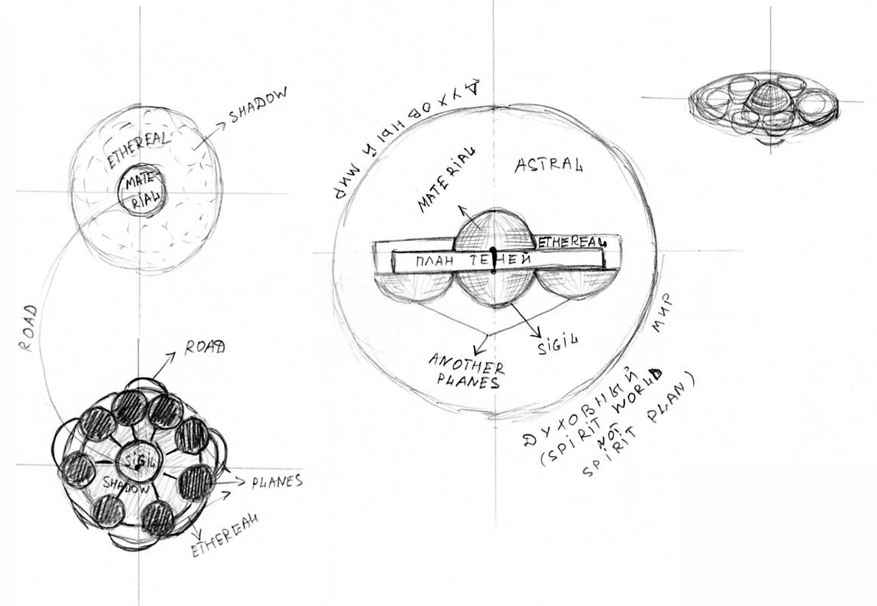 SHADOW
ETHEREAL
MATE-
RIAL
ROAD
ROAD
SIGIL
SHADOW
PLANES
ETHEREAL
ДУХОВНЫЙ МИР
ASTRAL
MATERIAL
ETHEREAL
ПЛАН ТЕНЕЙ
SIGIL
ANOTHER
PLANES
ДУХОВНЫЙ МИР
(SPIRIT WORLD
NOT
SPIRIT PLAN)